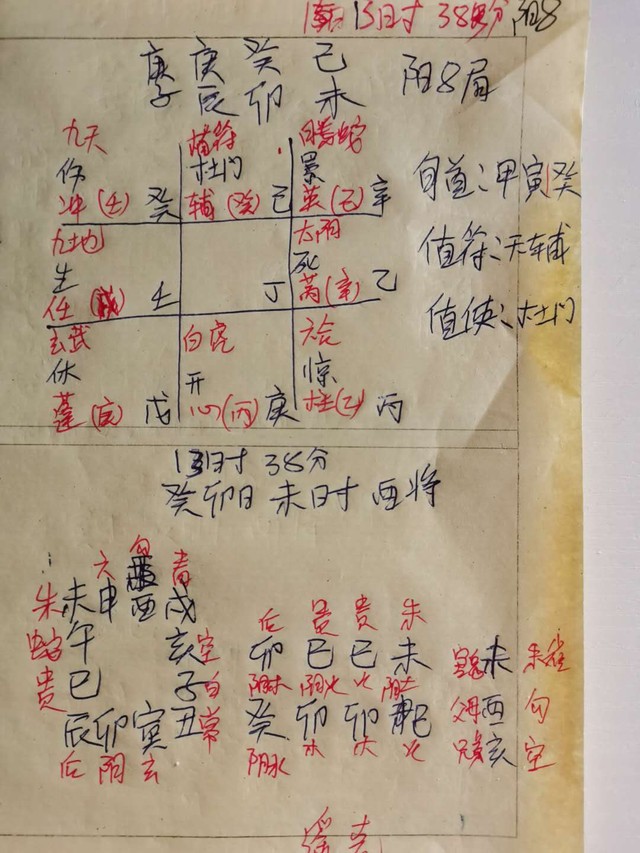 13时 38分 阳8
庚 庚 癸 己 阳8局
子 辰 卯 未
九天 值符 腾蛇
伤 杜门 景
冲(壬) 癸 辅(癸) 己 英(己) 辛
旬首:甲寅癸
九地 太阴
生 死
任(戊) 壬 丁 芮(辛) 乙
值符:天辅
玄武 白虎 六合
休 开 惊
蓬(庚) 戊 心(丙) 庚 柱(乙) 丙
值使:杜门
13时 38分
癸卯日 未时 酉将
六 勾 青
朱 未 申 酉 戌
蛇 午 亥 空
贵 巳 子 白
辰 卯 寅 丑 常
后 阴 玄
后 贵 贵 朱
卯 巳 巳 未
阴木 阴火 火 阴土
癸 卯 卯 巳
阴水 木 木 火
未 朱雀
父母 酉 勾
兄 亥 空
遥克